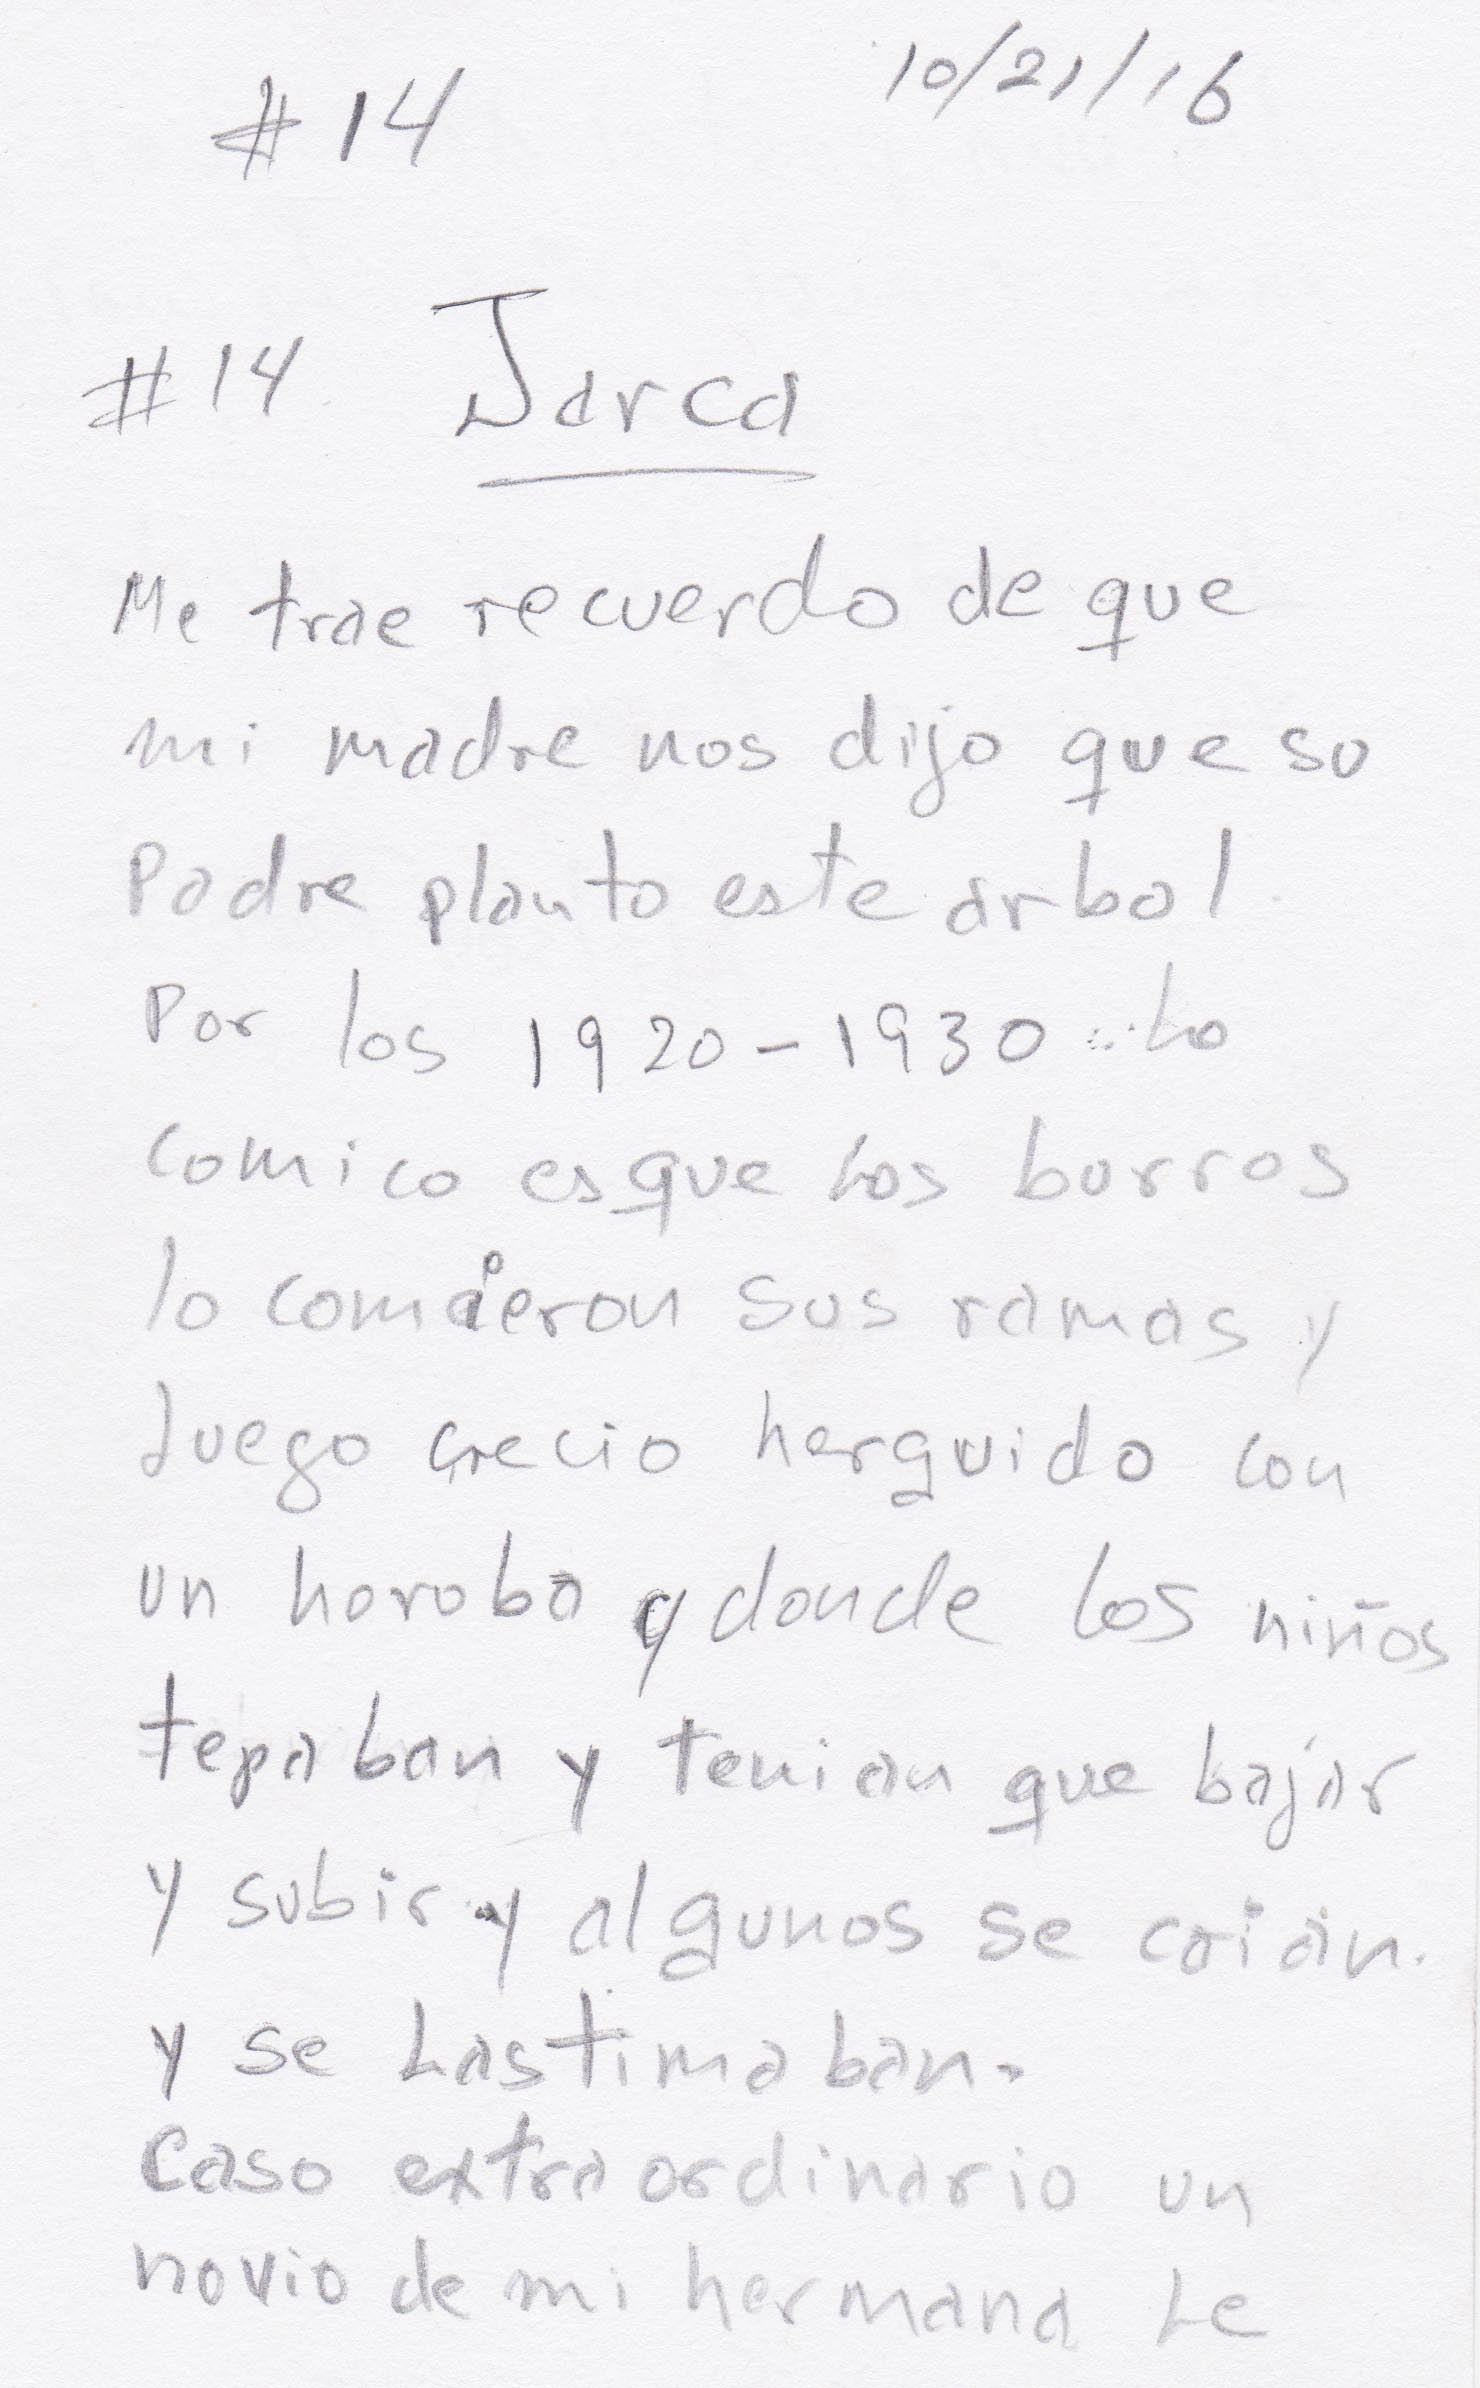 #14 10/21/16
#14 Jarca
Me trae recuerdo de que
mi madre nos dijo que su
Padre planto este arbol.
Por los 1920-1930 Lo
comico es que Los burros
lo comieron sus ramas y
Luego crecio herguido con
un horobo y donde Los niños
tepaban y tenian que bajar
y subir y algunos se coian.
y se Lastimaban.
Caso extraordinario un
novio de mi hermana Le